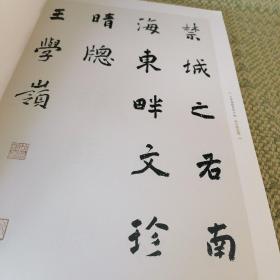 禁城之右南
海東畔文珍
晴牕
王學嶺